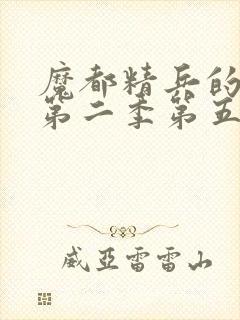 魔都精兵的
第二季第五
威亚雷雷山